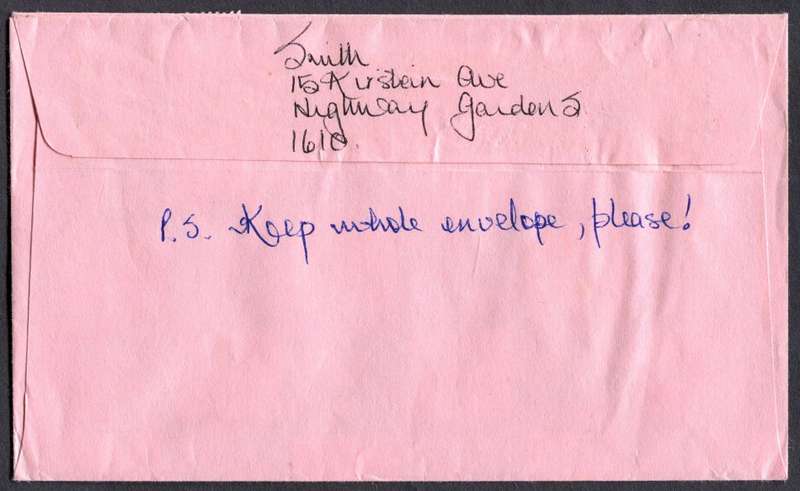 Smith
15 Kirstein Ave
Highway Gardens
1610.
P.S. Keep whole envelope, please!